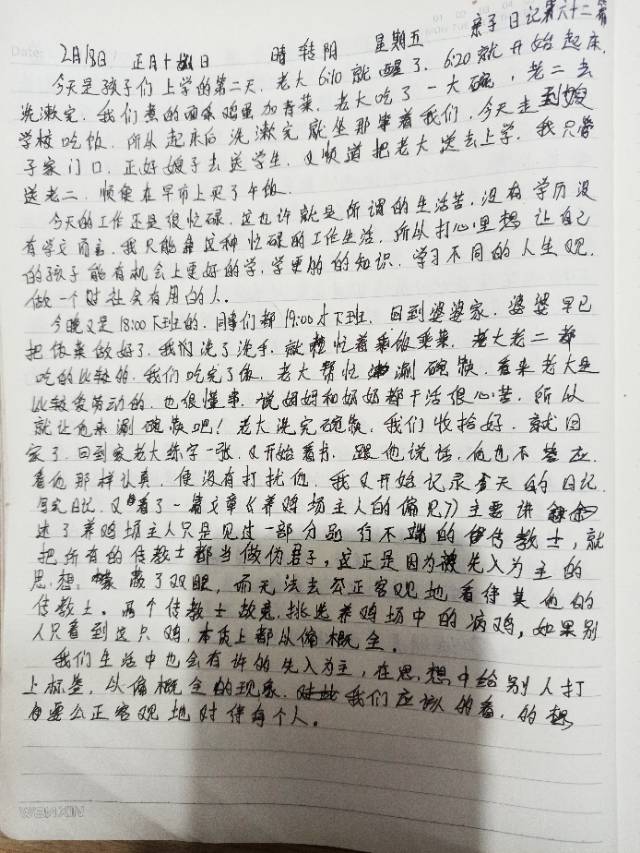 亲子日记第六十二篇
2月18日 正月十八日 晴转阴 星期五
今天是孩子们上学的第二天.老大6:10就醒了.6:20就开始起床.
洗漱完.我们煮的面条鸡蛋加青菜.老大吃了一大碗,老二去
学校吃饭.所以起床后洗漱完就坐那等着我们,今天走到嫂
子家门口,正好嫂子去送学生,又顺道把老大送去上学.我只管
送老二.顺便在早市上买了午饭.
今天的工作还是很忙碌.这也许就是所谓的生活苦.没有学历没
有学文而言.我只能靠这种忙碌的工作生活,所以打心里想让自己
的孩子能有机会上更好的学,学更的的知识.学习不同的人生观.
做一个对社会有用的人.
今晚又是18:00下班的.同事们都19:00才下班.回到婆婆家.婆婆早已
把饭菜做好了.我们洗了洗手.就忙着乘饭乘菜.老大老二都
吃的比较的.我们吃完了饭.老大帮忙涮碗筷.看来老大是
比较爱劳动的.也很懂事.说妈妈和奶奶都干活很心苦.所以
就让他来涮碗筷吧!老大洗完碗筷.我们收拾好.就回
家了.回到家老大练字一张.又开始看书.跟他说话.他也不答应.
看他那样认真.便没有打扰他.我又开始记录今天的日记.
写完日记.又看了一篇文章《养鸡场主人的偏见》主要讲
述了养鸡场主人只是见过一部分品行不端的传教士,就
把所有的传教士都当做伪君子,这正是因为被先入为主的
思想.蒙蔽了双眼,而无法去公正客观地看待其他的
传教士.两个传教士故意挑选养鸡场中的病鸡,如果别
人只看到这只鸡,本质上都以偏概全.
我们生活中也会有许的先入为主,在思想中给别人打
上标签,以偏概全的现象.我们应该的看.的想
自要公正客观地对待每个人.